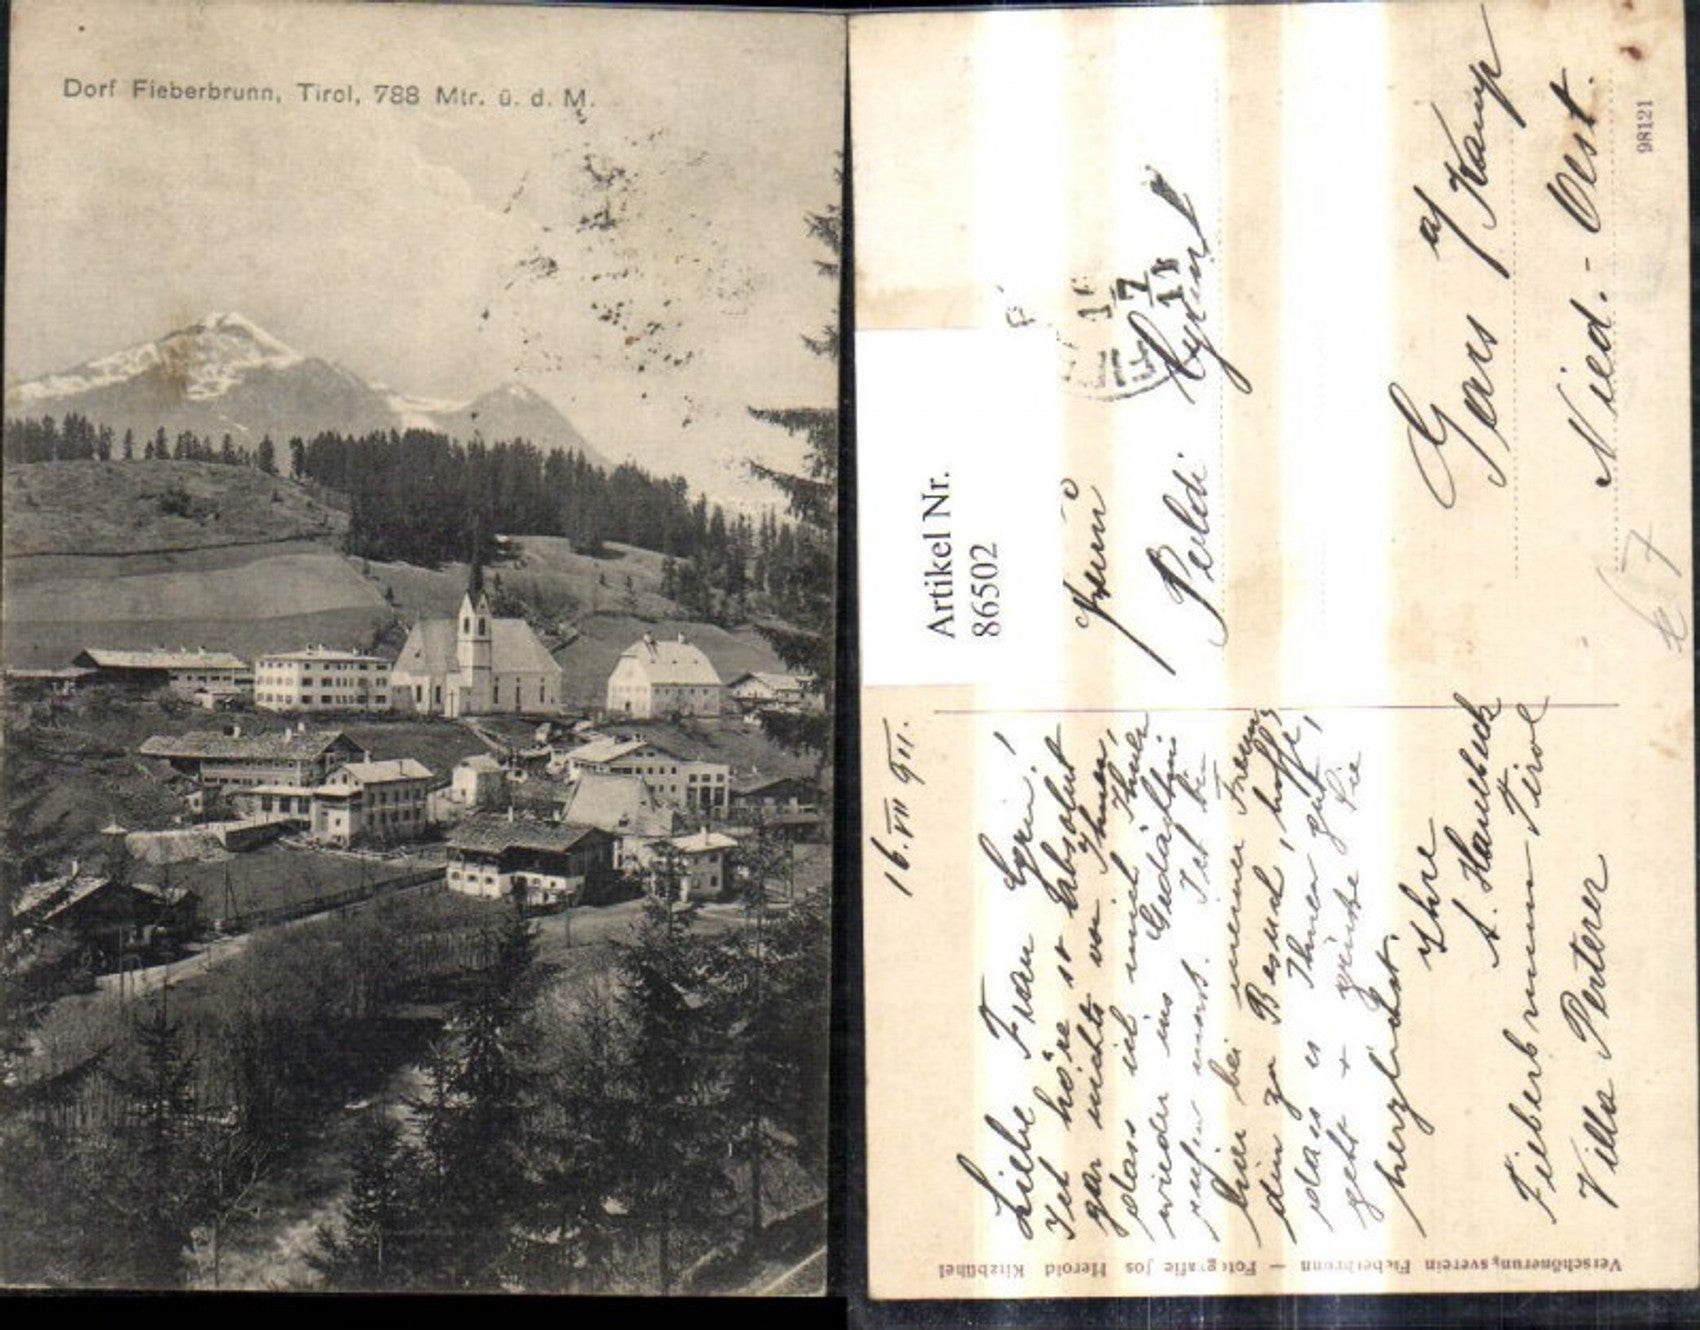 Dorf Fieberbrunn, Tirol, 788 Mtr. ü. d. M.
Artikel Nr.
86502
16. VII 911.
Liebe Frau Gyri!
Ich höre so absolut
gar nichts von Ihnen,
dass ich mich Ihnen
wieder ins Gedächtnis
rufen muss. Ich bin
hier bei meiner Freun
din zu Besuch, hoffe,
dass es Ihnen gut
geht + grüsse Sie
herzlichst.
Ihre
A. Hausbeck
Fieberbrunn-Tirol
Villa Perterer
Frau
Poldi
Gars a/Kamp
Nied.-Oest.
98121
Verschönerungsverein Fieberbrunn — Fotografie Jos Herold Kitzbühel